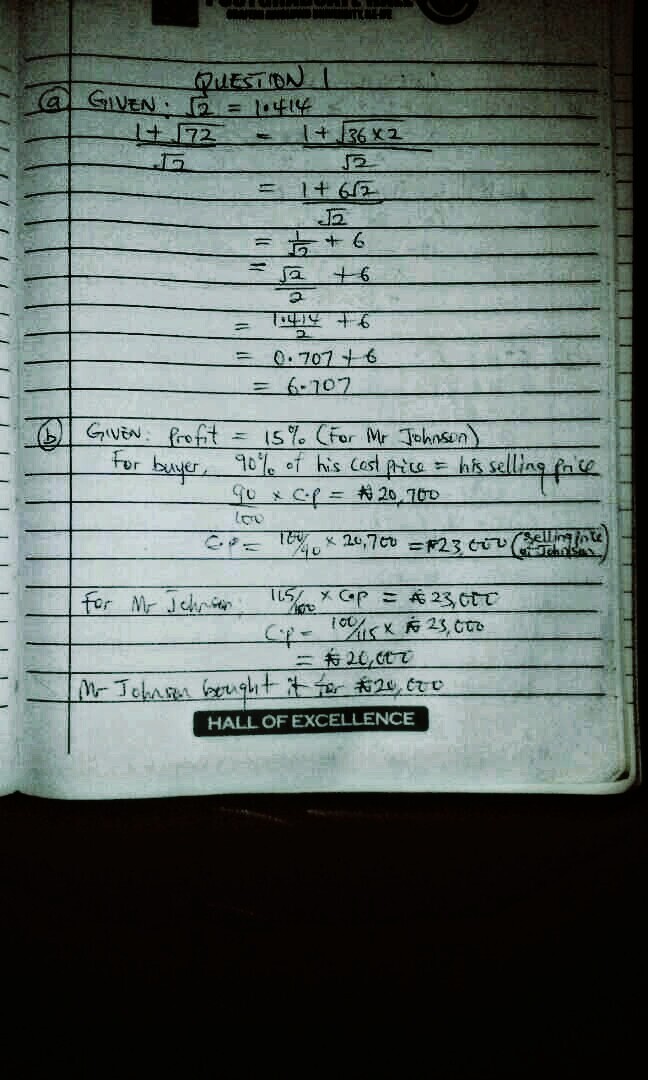 QUESTION 1
(a) GIVEN: √2 = 1.414
1+√72 / √2 = 1+√36×2 / √2
= 1+6√2 / √2
= 1/√2 + 6
= √2/2 + 6
= 1.414/2 + 6
= 0.707+6
= 6.707
(b) GIVEN: Profit = 15% (For Mr Johnson)
For buyer, 90% of his cost price = his selling price
90/100 × C.p = ₦20,700
C.p = 100/90 × 20,700 = ₦23,000 (Selling price of Johnson)
For Mr Johnson; 115/100 × C.p = ₦23,000
C.p = 100/115 × ₦23,000
= ₦20,000
Mr Johnson bought it for ₦20,000
HALL OF EXCELLENCE